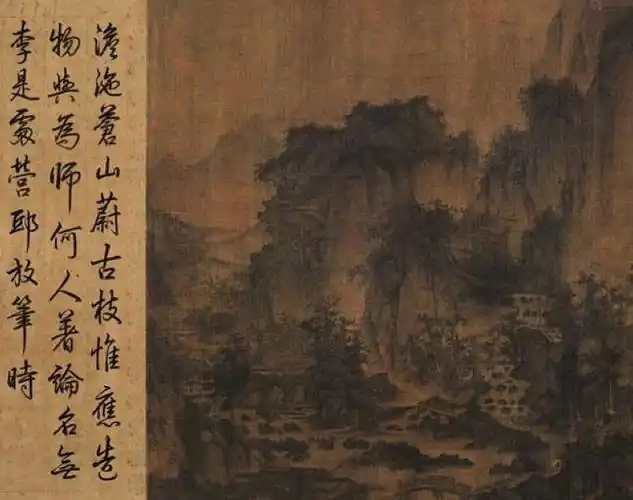 澹沲蒼山蔚古枝惟應造
物與為師何人著論名無
李是處營邱放筆時